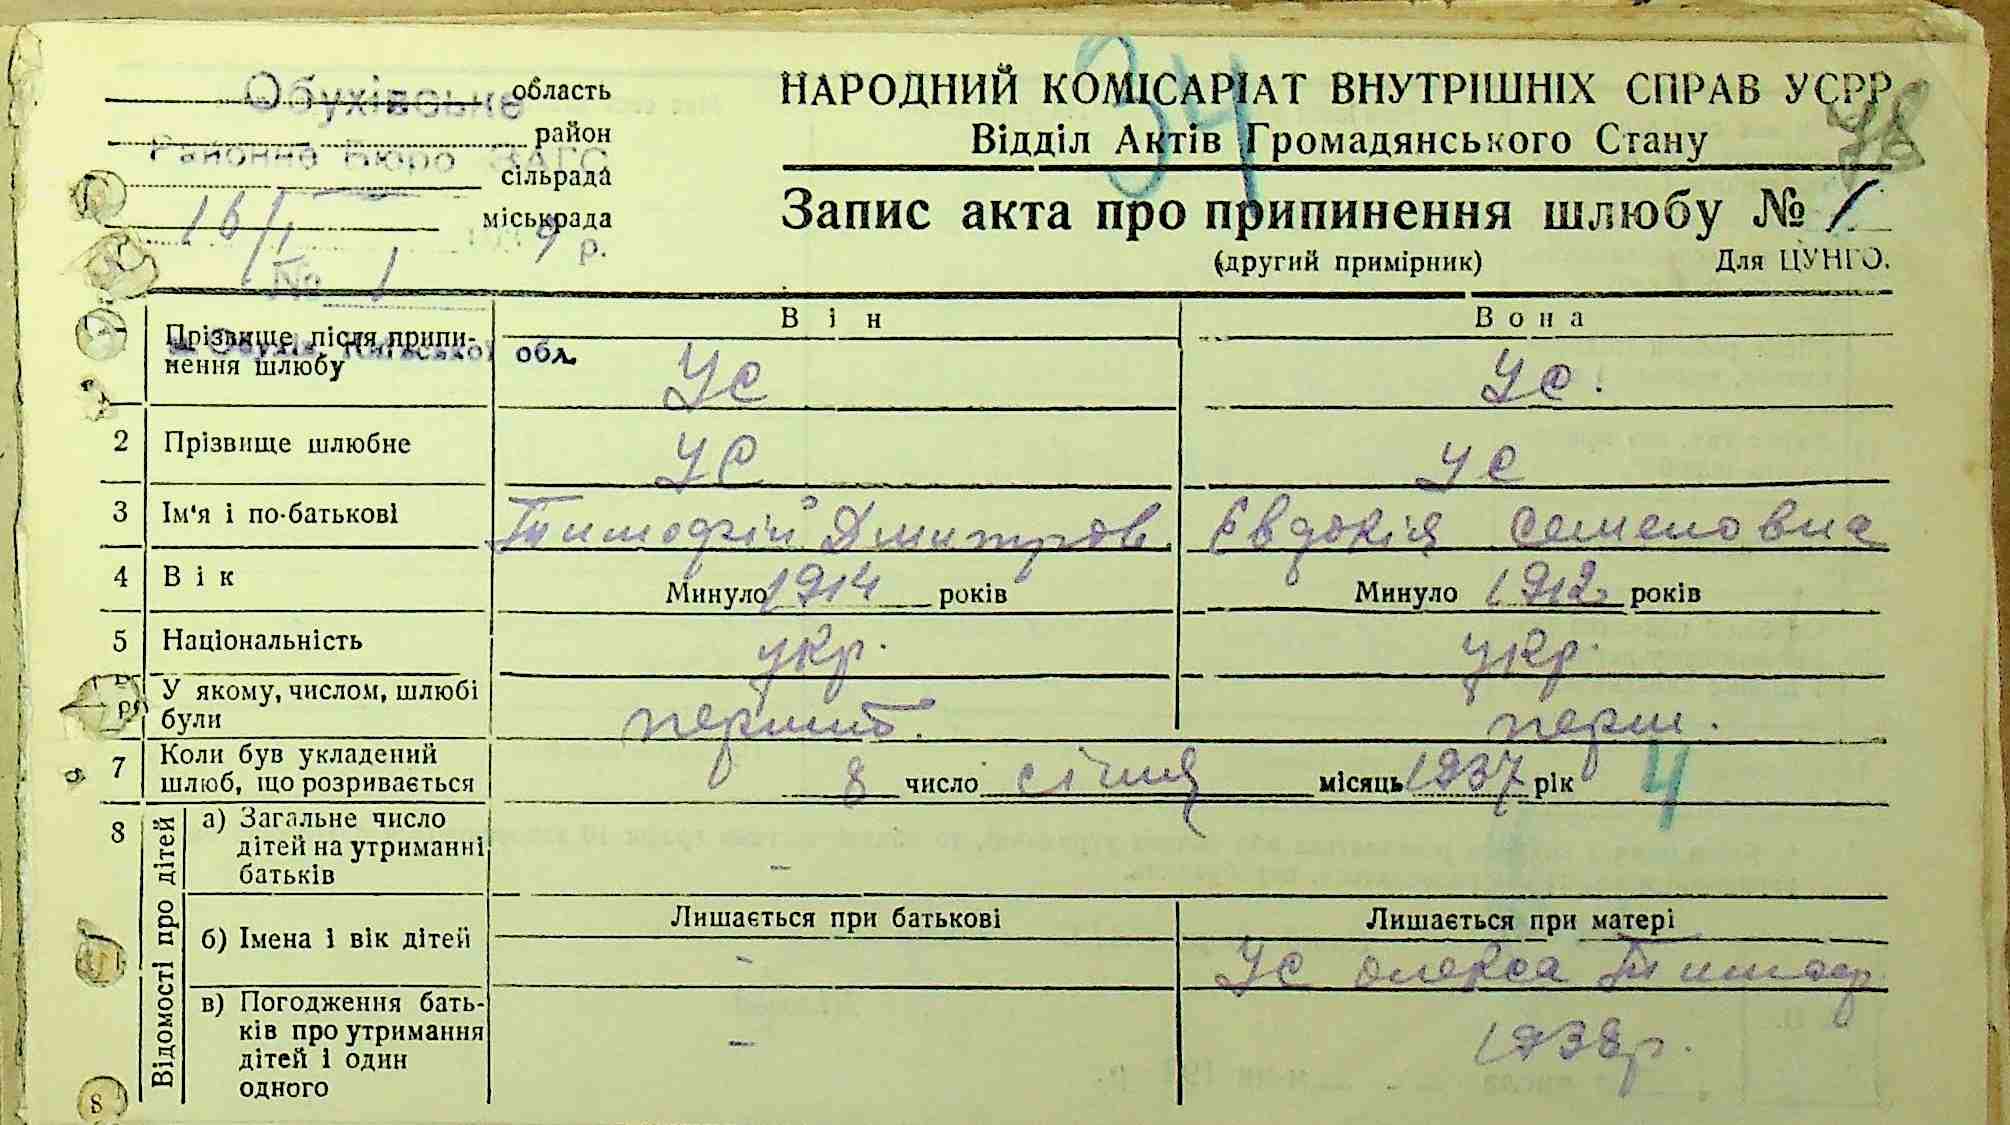 Обухівське область
район
Районне Бюро ЗАГС
сільрада
16/I міськрада
9 р.
№ 1
НАРОДНИЙ КОМІСАРІАТ ВНУТРІШНІХ СПРАВ УСРР
34
48
Відділ Актів Громадянського Стану
Запис акта про припинення шлюбу № 1
(другий примірник) Для ЦУНГО.
Він Вона
Прізвище після припи-
нення шлюбу
м. Обухів, Київської обл.
Ус Ус.
2 Прізвище шлюбне Ус Ус
3 Ім'я і по-батькові Тимофій Дмитров. Євдокія Семеновна
4 Вік Минуло 1914 років Минуло 1912 років
5 Національність укр. укр.
У якому, числом, шлюбі
були першіт. перш.
7 Коли був укладений
шлюб, що розривається 8 число січня місяць 1937 рік 4
8 Відомості про дітей
а) Загальне число
дітей на утриманні
батьків -
Лишається при батькові Лишається при матері
б) Імена і вік дітей - Ус Олекса Тимоф.
в) Погодження бать-
ків про утримання
дітей і один
одного - 1938р.
8